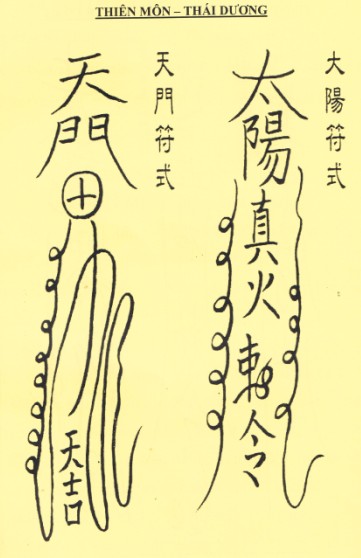 THIÊN MÔN – THÁI DƯƠNG
太陽符式
太陽真火敕令
天門符式
天門
天吉